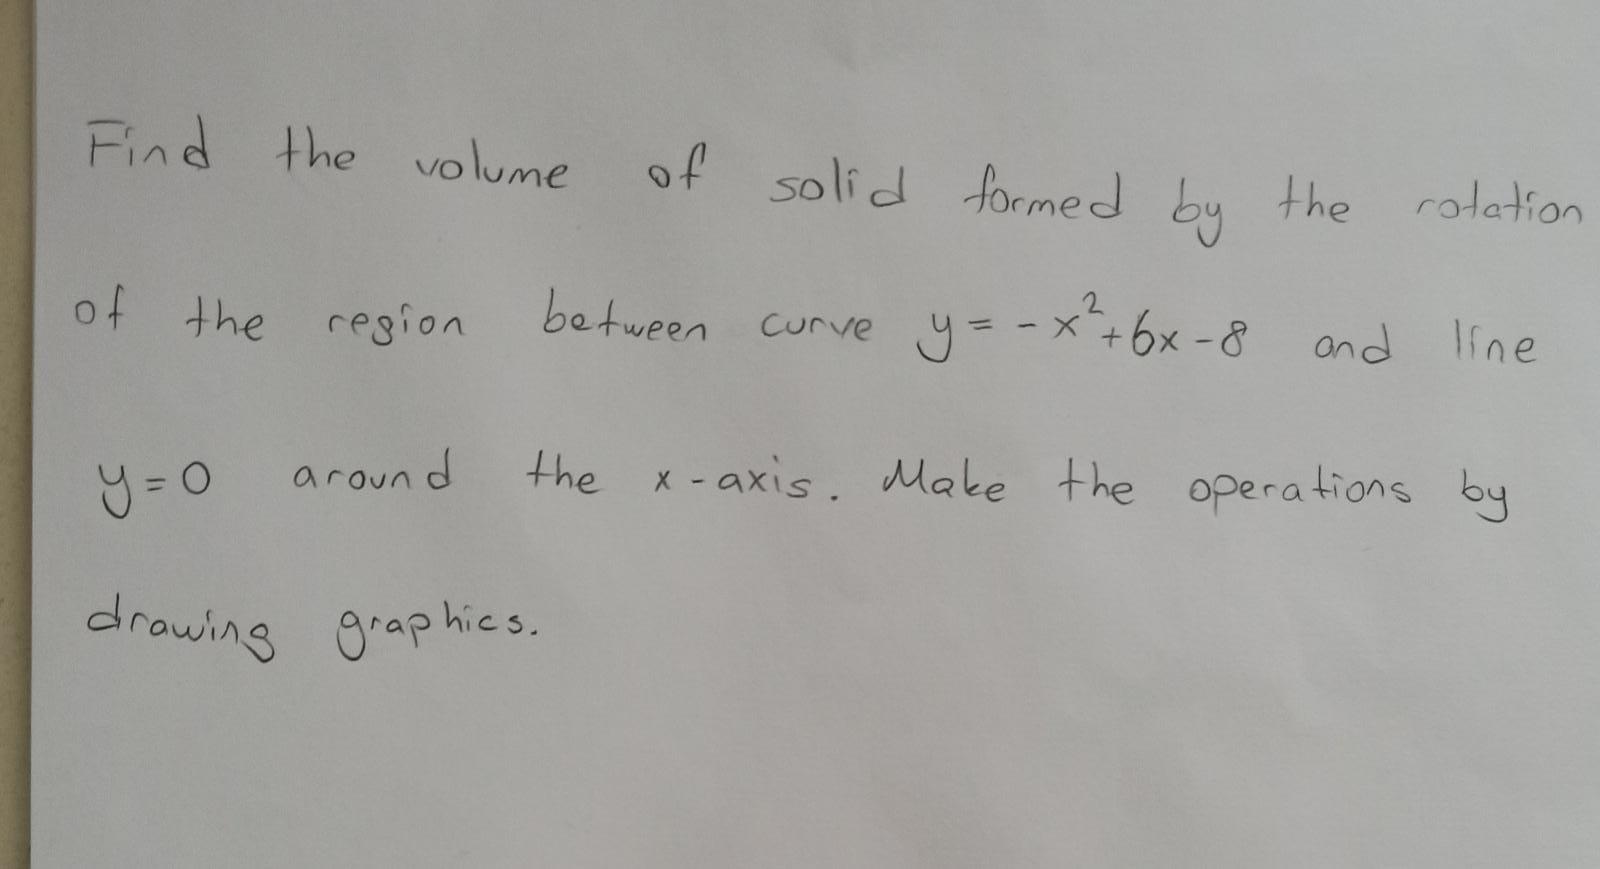 Find the volume of solid formed by the rotation
of the region between curve y = -x² + 6x - 8 and line
y = 0 around the x-axis. Make the operations by
drawing graphics.